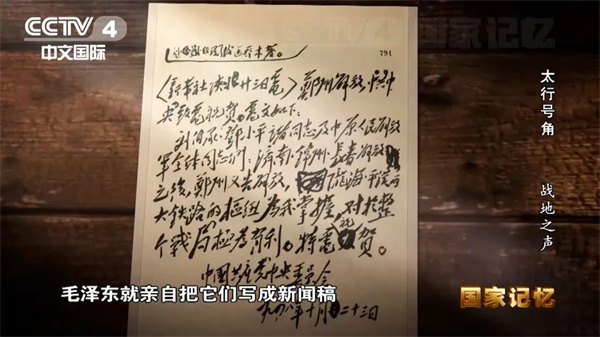 CCTV 4
中文国际
791
〈新華社陕北廿三日電〉鄭州解放,中共中
央致電祝贺。電文如下:
刘伯承、鄧小平諸同志及中原人民解放
軍全体同志們:濟南、錦州、長春解放
之後,鄭州又告解放,隴海平漢兩
大铁路的樞紐為我掌握,对於整
个戰局極為有利。特電祝贺。
中國共産党中央委員会
一九四八年十月二十三日
太行号角
战地之声
毛泽东就亲自把它们写成新闻稿
国家记忆